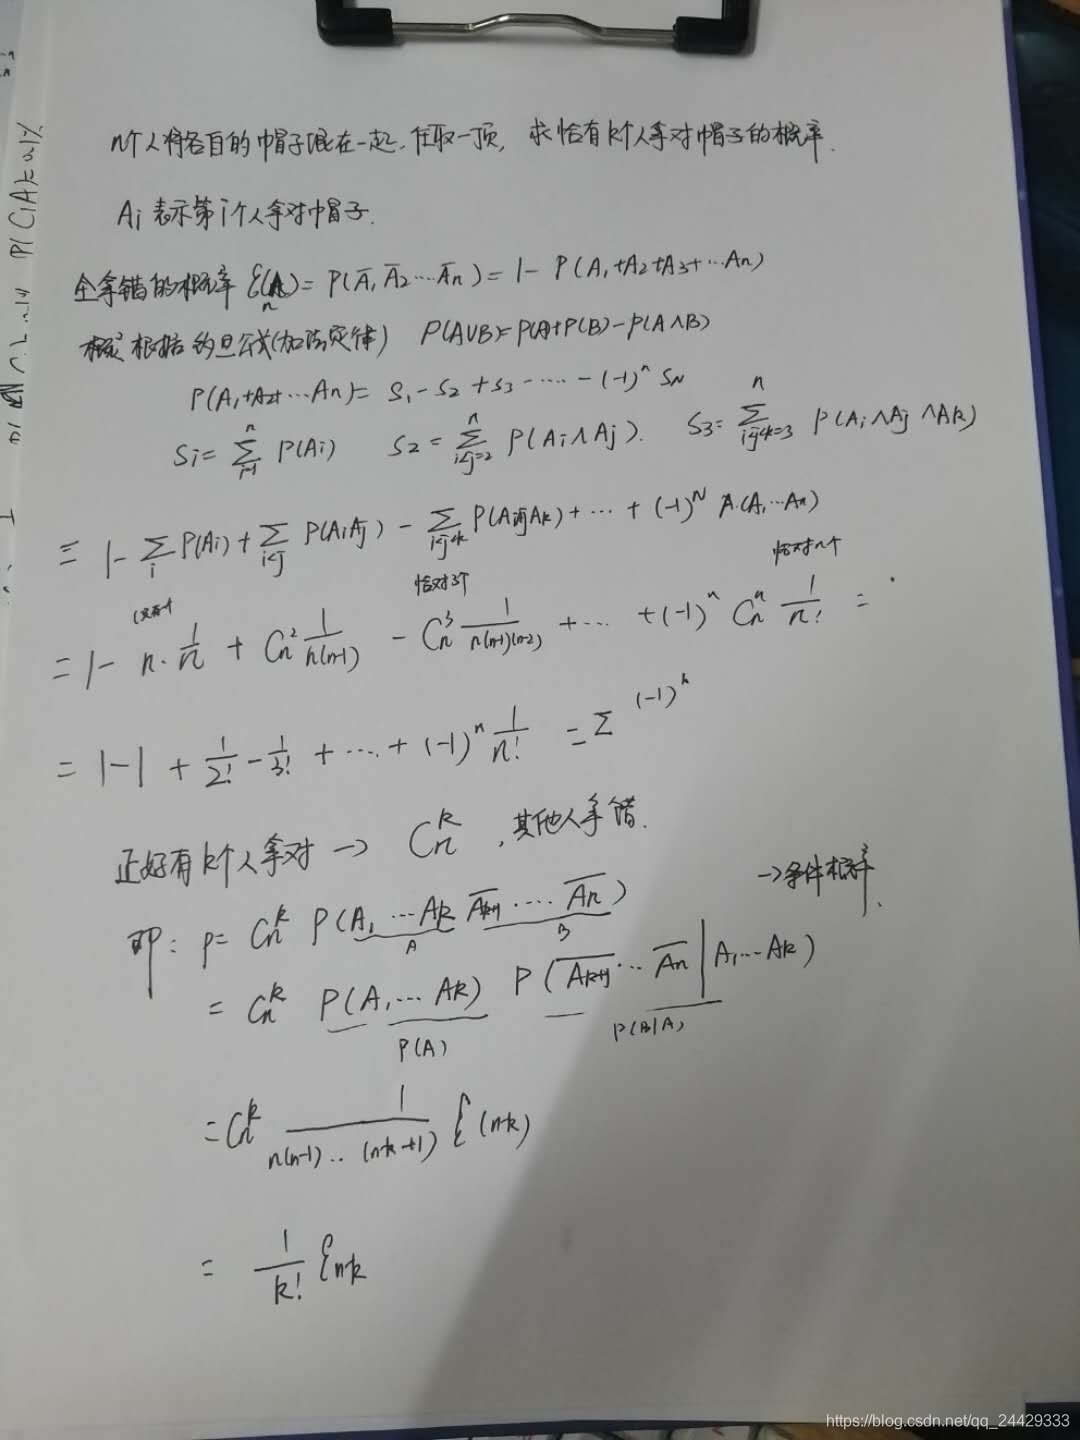 n个人将各自的帽子混在一起，任取一顶，求恰有k个人拿对帽子的概率.
Ai 表示第i个人拿对帽子.
全拿错的概率 ℰ(n) = P(Ā₁ Ā₂ ⋯ Ān) = 1 - P(A₁+A₂+A₃+⋯An)
根据 公式(加法定律) P(A∪B)= P(A)+P(B)-P(A∧B)
P(A₁+A₂+⋯An)= S₁ - S₂ + S₃ - ⋯⋯ - (-1)ⁿ SN
Si = ∑_{i=1}^{n} P(Ai) S₂ = ∑_{i<j=2}^{n} P(Ai∧Aj). S₃ = ∑_{i<j<k=3}^{n} P(Ai∧Aj∧Ak)
= 1 - ∑_{i} P(Ai) + ∑_{i<j} P(AiAj) - ∑_{i<j<k} P(AiAjAk) + ⋯ + (-1)^N (A₁⋯An)
恰对3个 恰对n个
= 1 - n·1/n + Cn² 1/n(n-1) - Cn³ 1/n(n-1)(n-2) + ⋯ + (-1)ⁿ Cnⁿ 1/n! =
= 1-1 + 1/2! - 1/3! + ⋯ + (-1)ⁿ 1/n! = ∑ (-1)^k
正好有k个人拿对 → Cn^k ，其他人拿错.
→条件概率.
即: p= Cn^k P(A₁ ⋯Ak A̅k+1 ⋯⋯ A̅n)
A B
= Cn^k P(A₁⋯ Ak) P(A̅k+1 ⋯ A̅n | A₁⋯Ak)
P(A) P(B|A)
= Cn^k 1/n(n-1)..(n-k+1) ℰ(n-k)
= 1/k! ℰn-k
https://blog.csdn.net/qq_24429333